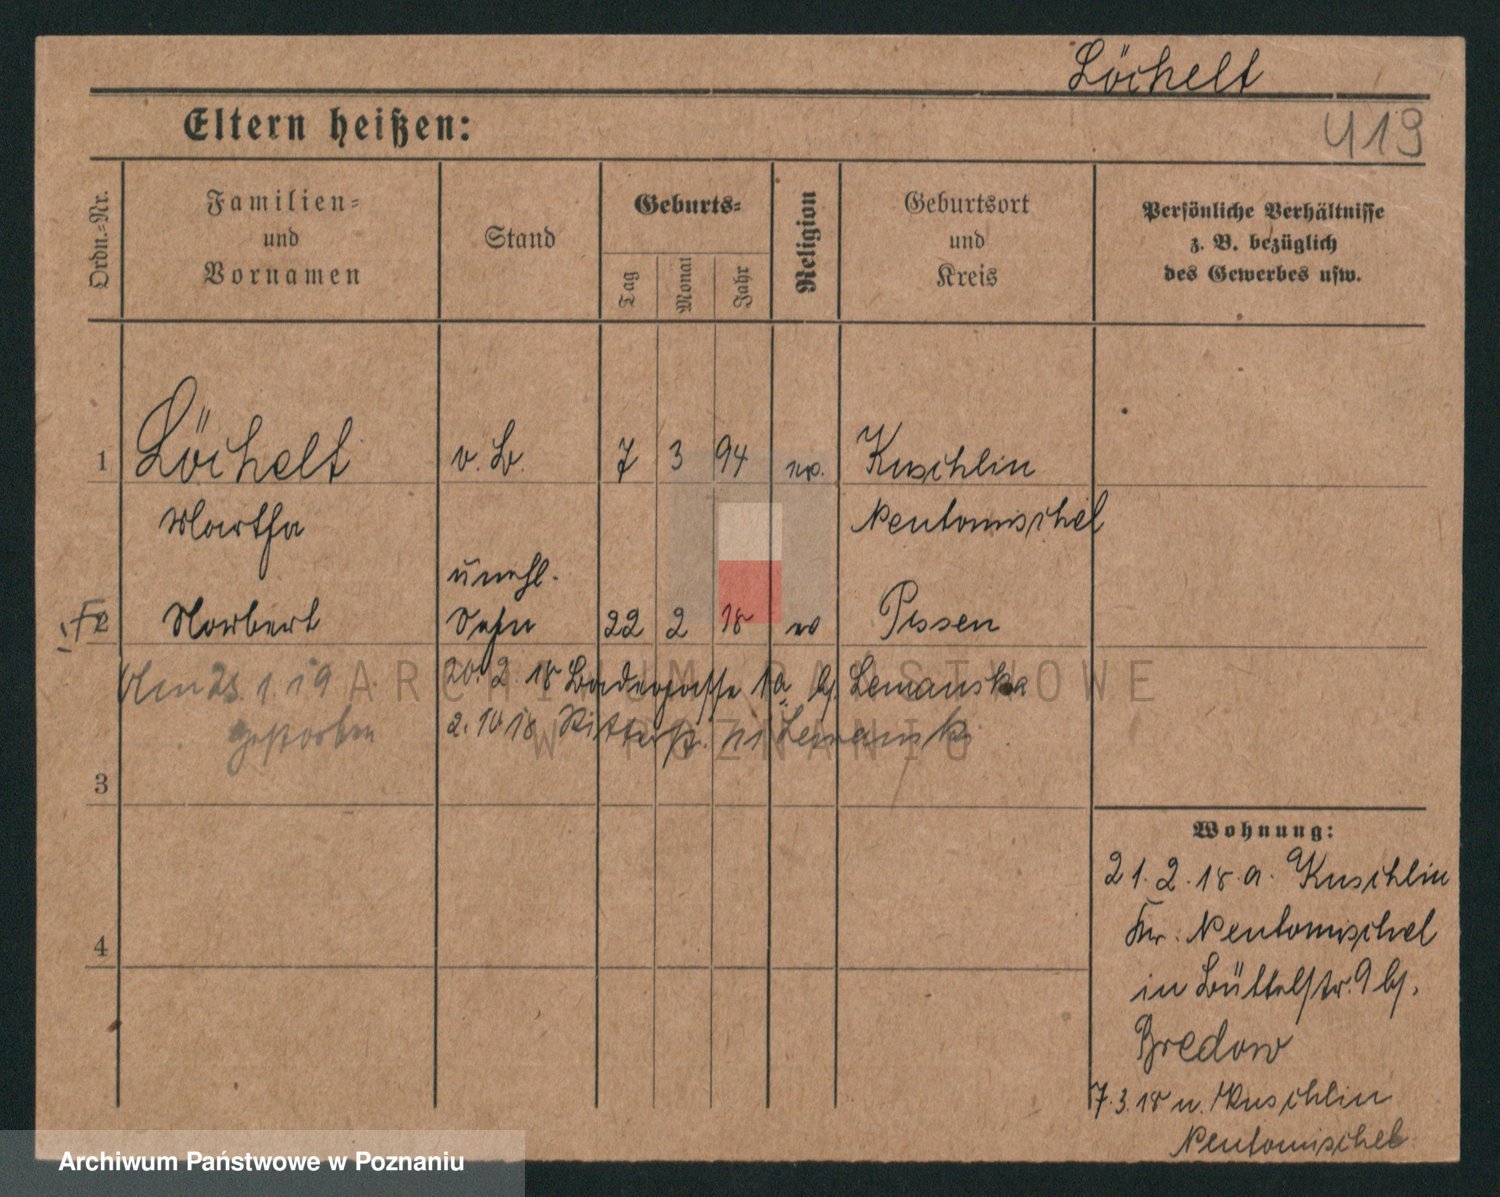 Löchelt
Eltern heißen:
419
Ordn.-Nr.
Familien-
und
Vornamen
Stand
Geburts-
Tag
Monat
Jahr
Religion
Geburtsort
und
Kreis
Persönliche Verhältnisse
z. B. bezüglich
des Gewerbes usw.
1 Löchelt v. B. 7 3 94 Kuschlin
Martha Neutomischel
unehl.
2 Norbert Sohn 22 2 18 Possen
Am 23. 1. 19 20. 2. 18 Badergasse 1a b/. Lemanska
gestorben 2. 10 18 Ritterstr. 11 Lemanski
3
4
Wohnung:
21. 2. 18. a. Kuschlin
Kr. Neutomischel
in Büttelstr. 9 b/.
Bredow
7. 3. 18 n. Kuschlin
Neutomischel
ARCHIWUM PAŃSTWOWE
W POZNANIU
Archiwum Państwowe w Poznaniu